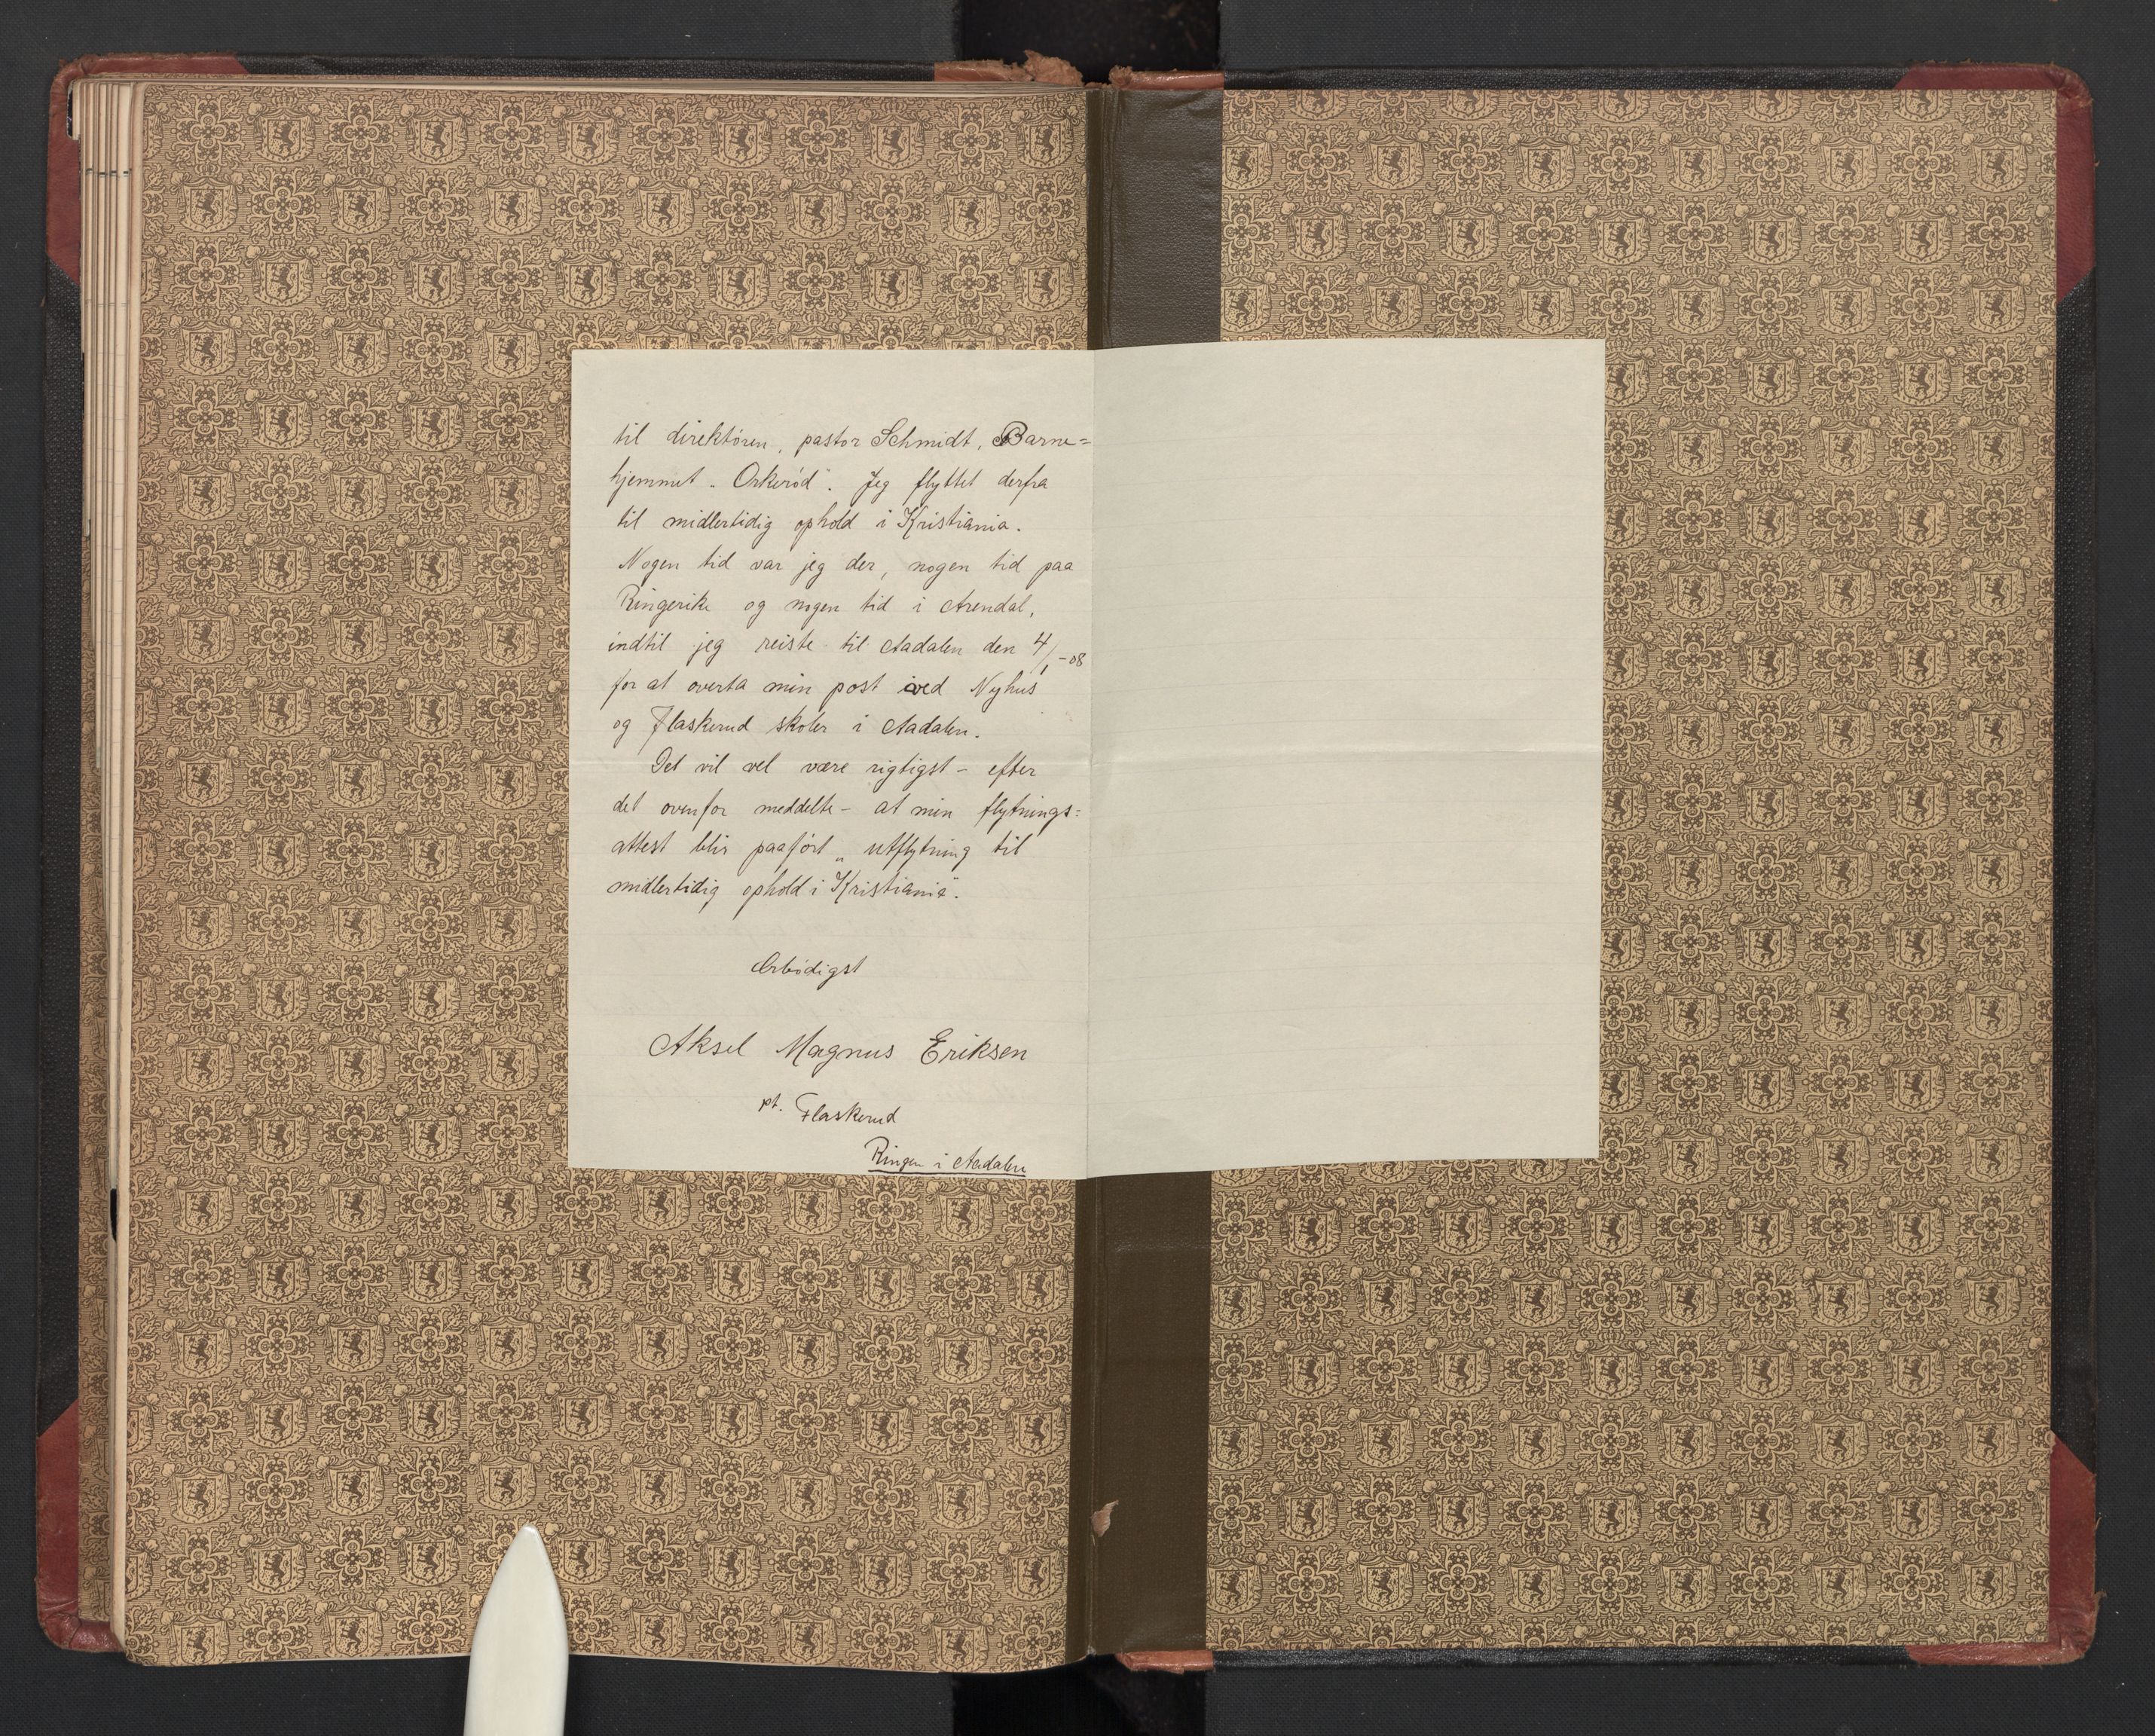 til direktören, pastor Schmidt, Barne=
hjemmet "Orkeröd". Jeg flyttet derfra
til midlertidig ophold i Kristiania.
Nogen tid var jeg der, nogen tid paa
Ringerike og nogen tid i Arendal,
indtil jeg reiste til Aadalen den 4/1-08
for at overta min post ved Nyhus
og Flaskerud skoler i Aadalen.
Det vil vel være rigtigst - efter
det ovenfor meddelte - at min flytnings=
attest blir paaført "utflytning til
midlertidig ophold i Kristiania".
Ærbödigst
Aksel Magnus Eriksen
pt. Flaskerud
Ringen i Aadalen